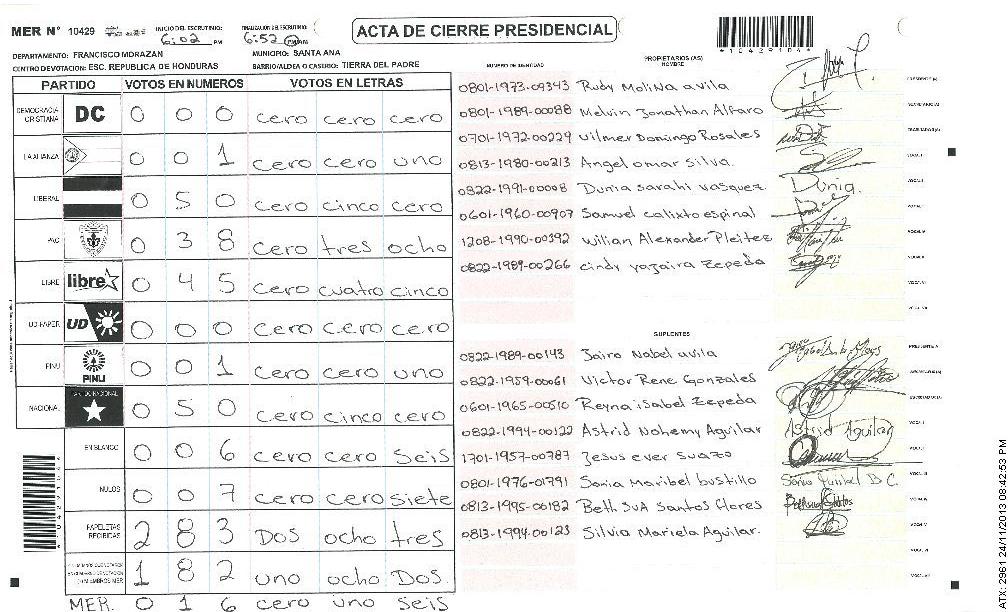 MER Nº 10429 INICIO DEL ESCRUTINIO: 6:02 PM FINALIZACION DEL ESCRUTINIO: 6:52 PM
ACTA DE CIERRE PRESIDENCIAL
*10429104*
DEPARTAMENTO: FRANCISCO MORAZAN MUNICIPIO: SANTA ANA
CENTRO DE VOTACION: ESC. REPUBLICA DE HONDURAS BARRIO/ALDEA O CASERIO: TIERRA DEL PADRE
PARTIDO VOTOS EN NUMEROS VOTOS EN LETRAS
DEMOCRACIA CRISTIANA DC 0 0 0 cero cero cero
LA ALIANZA 0 0 1 cero cero uno
LIBERAL 0 5 0 cero cinco cero
PAC 0 3 8 cero tres ocho
LIBRE libre 0 4 5 cero cuatro cinco
UD-FAPER UD 0 0 0 cero cero cero
PINU PINU 0 0 1 cero cero uno
NACIONAL PARTIDO NACIONAL 0 5 0 cero cinco cero
EN BLANCO 0 0 6 cero cero seis
NULOS 0 0 7 cero cero siete
PAPELETAS RECIBIDAS 2 8 3 Dos ocho tres
1 8 2 uno ocho Dos
MER. 0 1 6 cero uno seis
NUMERO DE IDENTIDAD PROPIETARIOS (AS) NOMBRE
0801-1973-09343 Ruby Molina avila PRESIDENTE (A)
0801-1989-00088 Melvin Jonathan Alfaro SECRETARIO (A)
0701-1972-00229 Vilmer Domingo Rosales ESCRUTADOR (A)
0813-1980-00213 Angel omar Silva. VOCAL I
0822-1991-00008 Dunia sarahi vasquez Dunia. VOCAL II
0601-1960-00907 Samuel calixto espinal VOCAL III
1208-1990-00392 wilian Alexander Pleitez VOCAL IV
0822-1989-00266 cindy yojaira zepeda VOCAL V
VOCAL VI
VOCAL VII
SUPLENTES
0822-1989-00143 Jairo Nobel avila PRESIDENTE (A)
0822-1959-00061 Victor Rene Gonzales SECRETARIO (A)
0601-1965-00510 Reyna isabel zepeda ESCRUTADOR (A)
0822-1994-00122 Astrid Nohemy Aguilar Astrid Aguilar VOCAL I
1701-1957-00787 Jesus ever suazo VOCAL II
0801-1976-01791 Sonia Maribel bustillo VOCAL III
0813-1995-00182 Beth SUA Santos Flores VOCAL IV
0813-1994-00123 Silvia Mariela Aguilar. VOCAL V
VOCAL VI
VOCAL VII
ATX: 2961 24/11/2013 08:42:53 PM